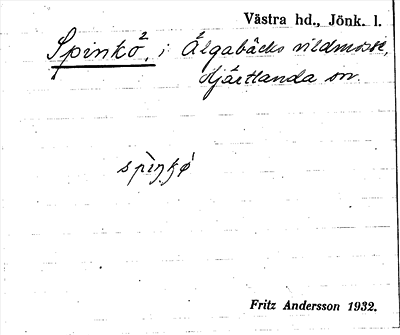 Västra hd., Jönk. l.
Spinkö, i Älgabäcks vildmosse,
Hjärtlanda sn.
spìŋkö́
Fritz Andersson 1932.